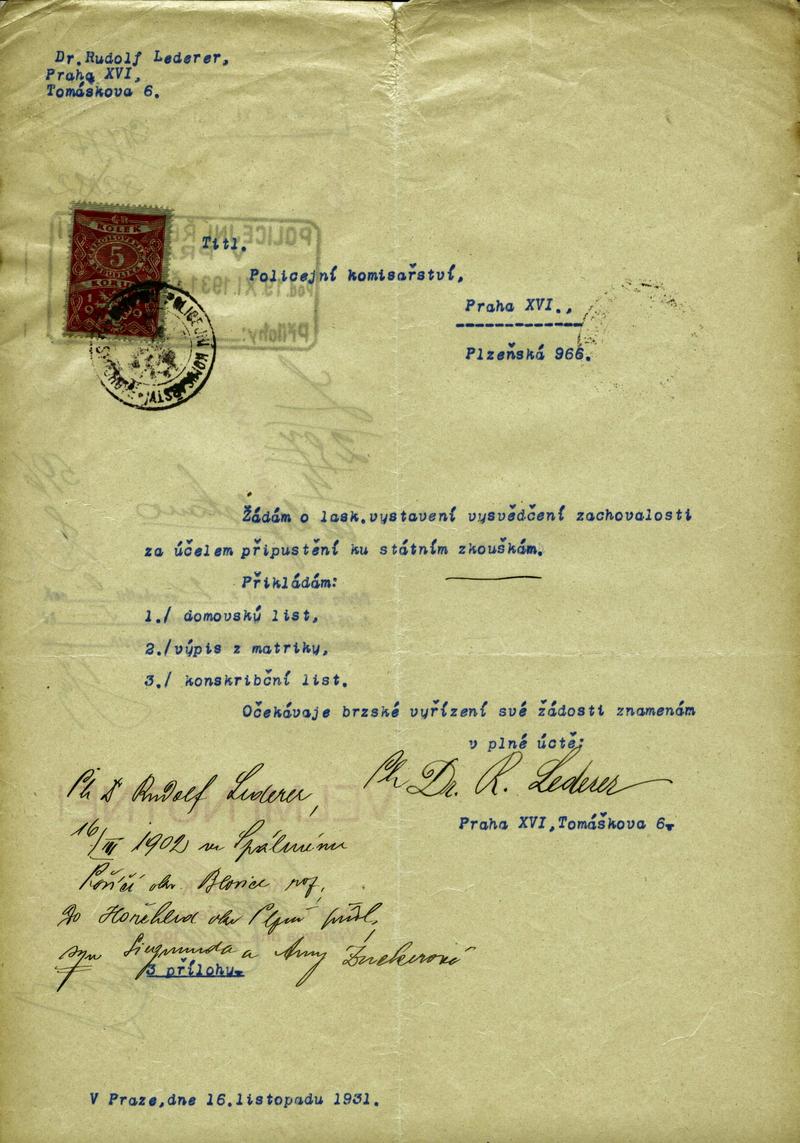 Dr. Rudolf Lederer,
Praha XVI,
Tomáskova 6.
KOLEK
5
Titl.
Policejní komisařství,
Praha XVI.,
Plzeňská 966.
POLICEJNÍ KOMISAŘSTVÍ
POLICEJNÍ
V PR
Pod. 19. XI. 1931
Přílohy:
Žádám o lask.vystavení vysvědčení zachovalosti
za účelem připustění ku státním zkouškám.
Přikládám:
1./ domovský list,
2./výpis z matriky,
3./ konskribční list.
Očekávaje brzské vyřízení své žádosti znamenám
v plné úctě:
Ph Dr. R. Lederer
Praha XVI,Tomáškova 6.
Ph Dr Rudolf Lederer,
16/III 1902 ve Spáleném
Poříčí okr. Blovice
Do okr Plzeň
syn Siegmunda a Anny Zuckerové
3 přílohy.
V Praze,dne 16.listopadu 1931.